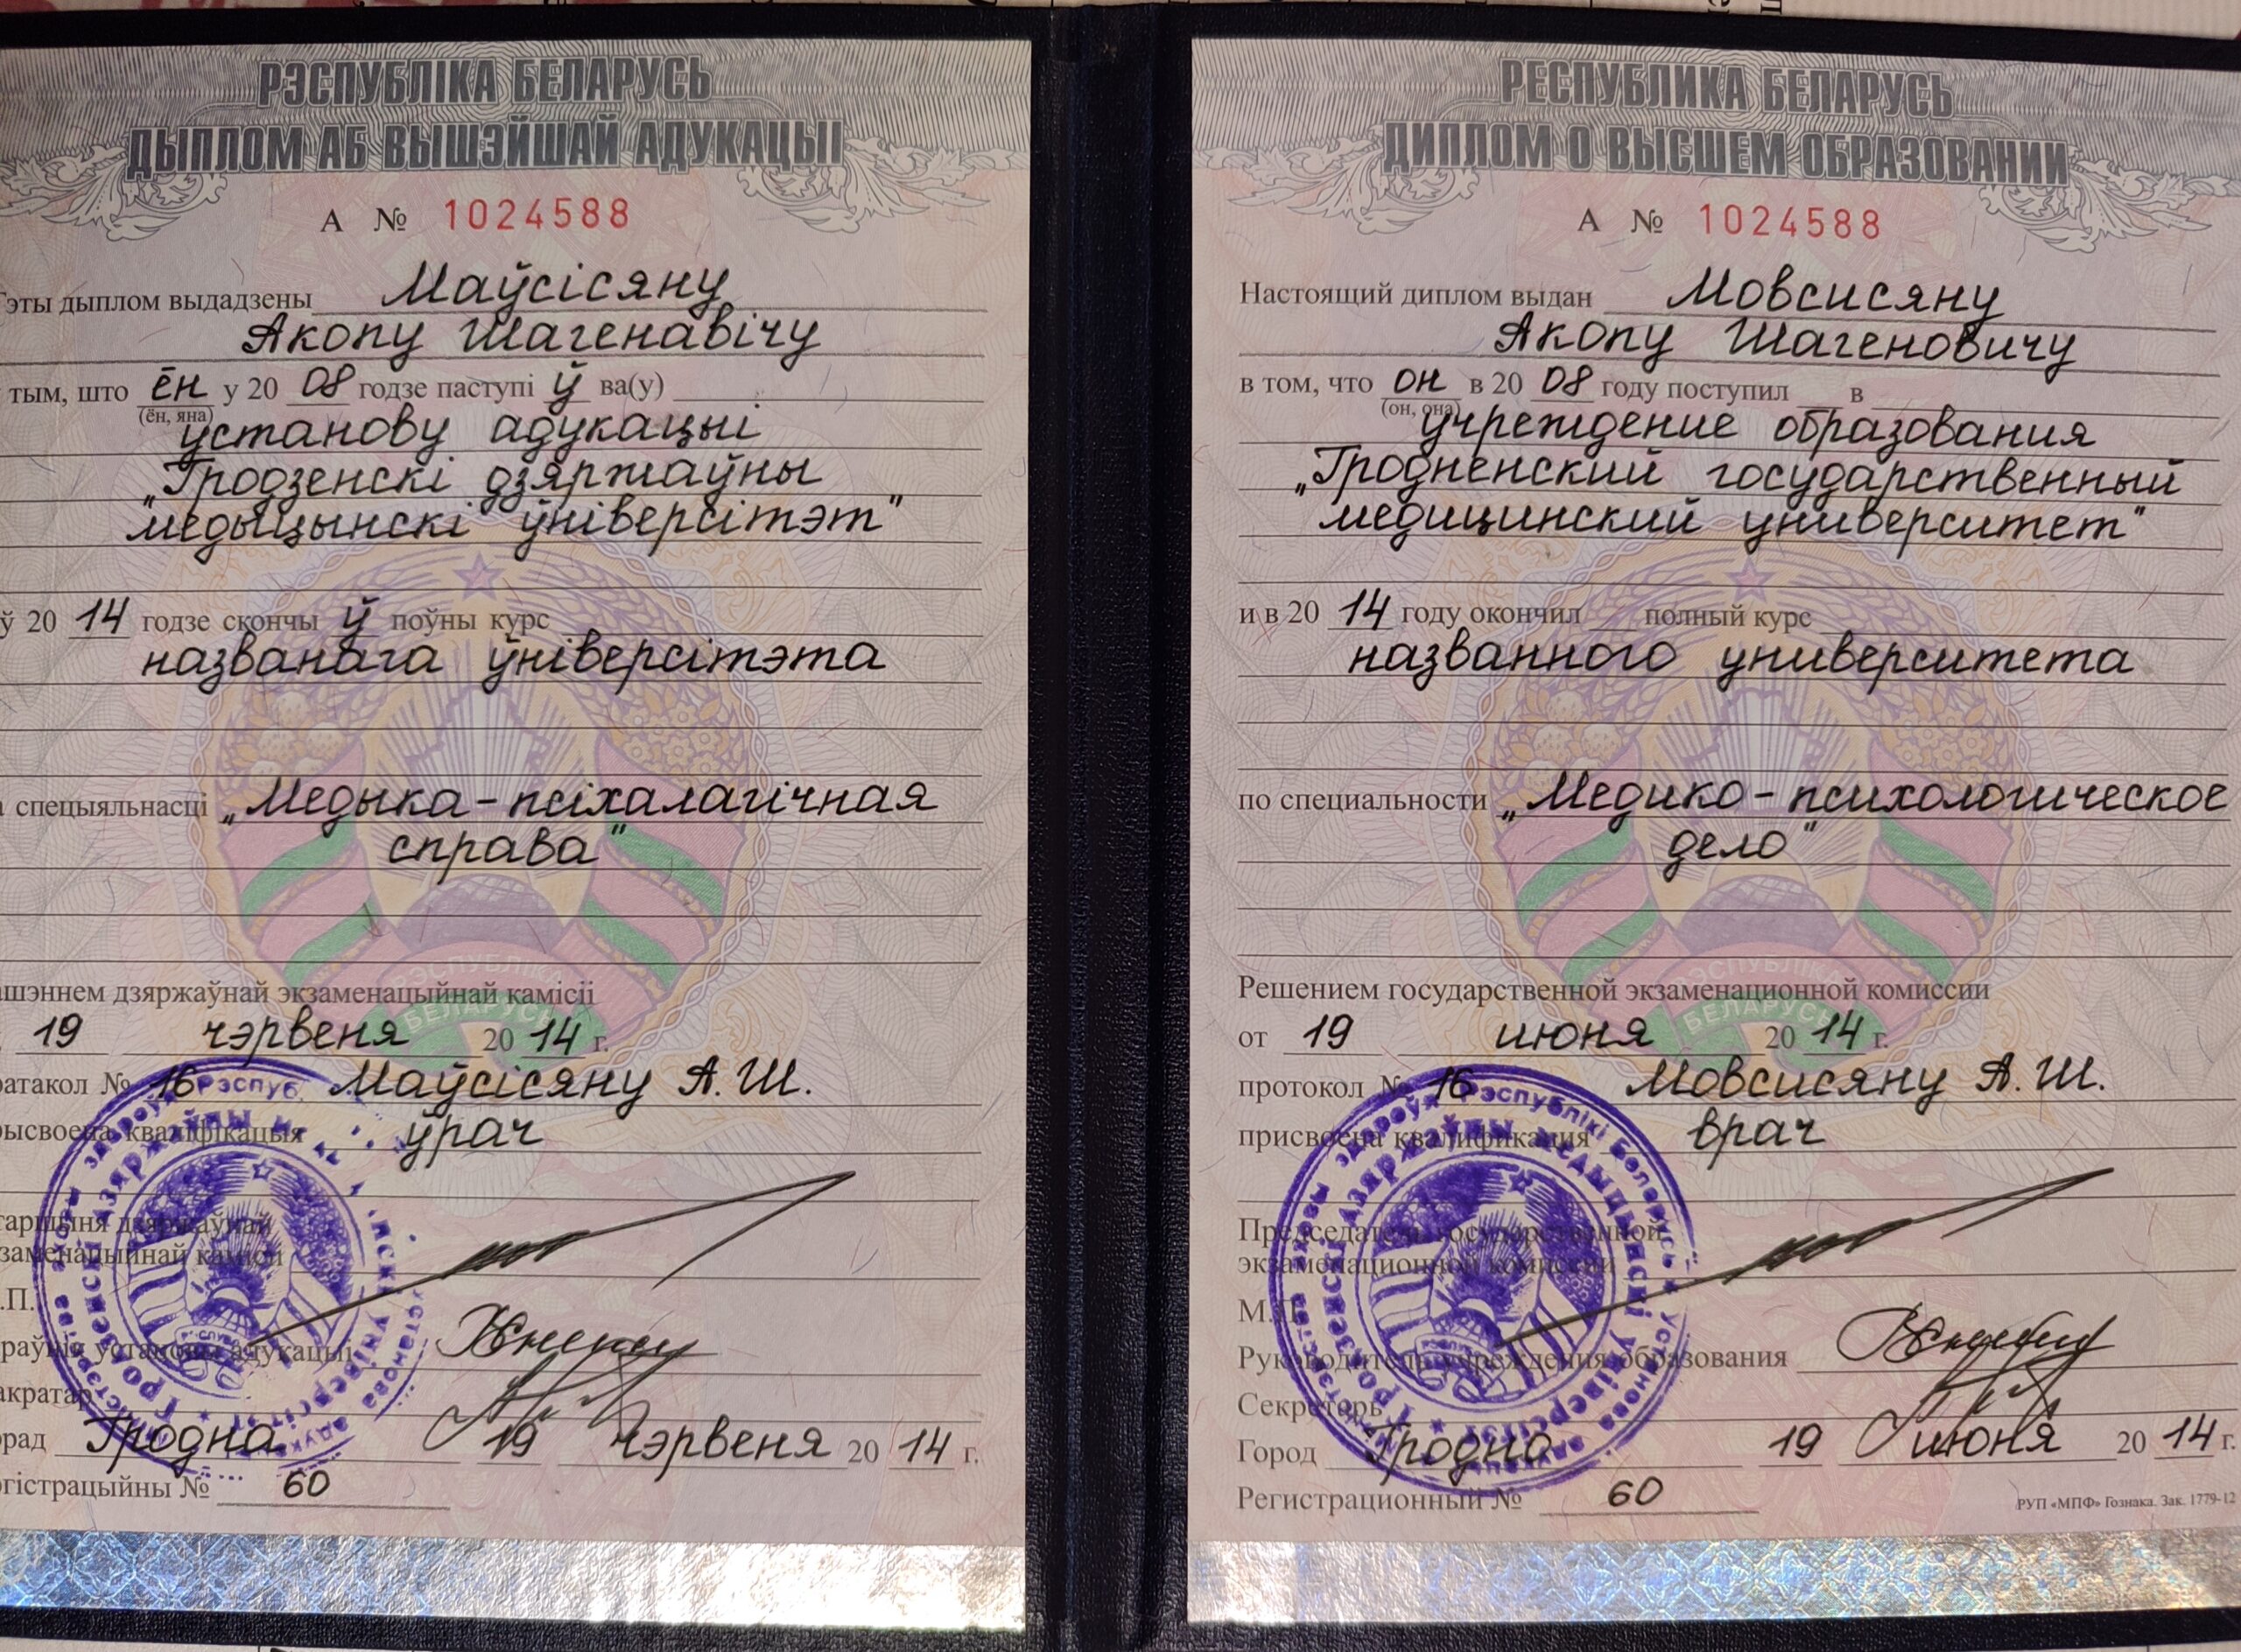 РЭСПУБЛІКА БЕЛАРУСЬ
ДЫПЛОМ АБ ВЫШЭЙШАЙ АДУКАЦЫІ
А № 1024588
Гэты дыплом выдадзены Маўсісяну
Акопу Шагенавічу
тым, што ён у 20 08 годзе паступі ў ва(у)
(ён, яна)
установу адукацыі
„Гродзенскі дзяржаўны
медыцынскі ўніверсітэт"
ў 20 14 годзе скончы ў поўны курс
названага ўніверсітэта
спецыяльнасці „Медыка-псіхалагічная
справа"
РЭСПУБЛІКА
БЕЛАРУСЬ
ашэннем дзяржаўнай экзаменацыйнай камісіі
19 чэрвеня 20 14 г.
ратакол № 16 Маўсісяну А.Ш.
рысвоена кваліфікацыя ўрач
таршыня дзяржаўнай
заменацыйнай камісіі
.П.
раўнік установы адукацыі
акратар
рад Гродна 19 чэрвеня 20 14 г.
гістрацыйны № 60
РЕСПУБЛИКА БЕЛАРУСЬ
ДИПЛОМ О ВЫСШЕМ ОБРАЗОВАНИИ
А № 1024588
Настоящий диплом выдан Мовсисяну
Акопу Шагеновичу
в том, что он в 20 08 году поступил в
(он, она)
учреждение образования
„Гродненский государственный
медицинский университет"
и в 20 14 году окончил полный курс
названного университета
по специальности „Медико-психологическое
дело"
РЭСПУБЛІКА
БЕЛАРУСЬ
Решением государственной экзаменационной комиссии
от 19 июня 20 14 г.
протокол № 16 Мовсисяну А.Ш.
присвоена квалификация врач
Председатель государственной
экзаменационной комиссии
М.П.
Руководитель учреждения образования
Секретарь
Город Гродно 19 июня 20 14 г.
Регистрационный № 60
РУП «МПФ» Гознака. Зак. 1779-12